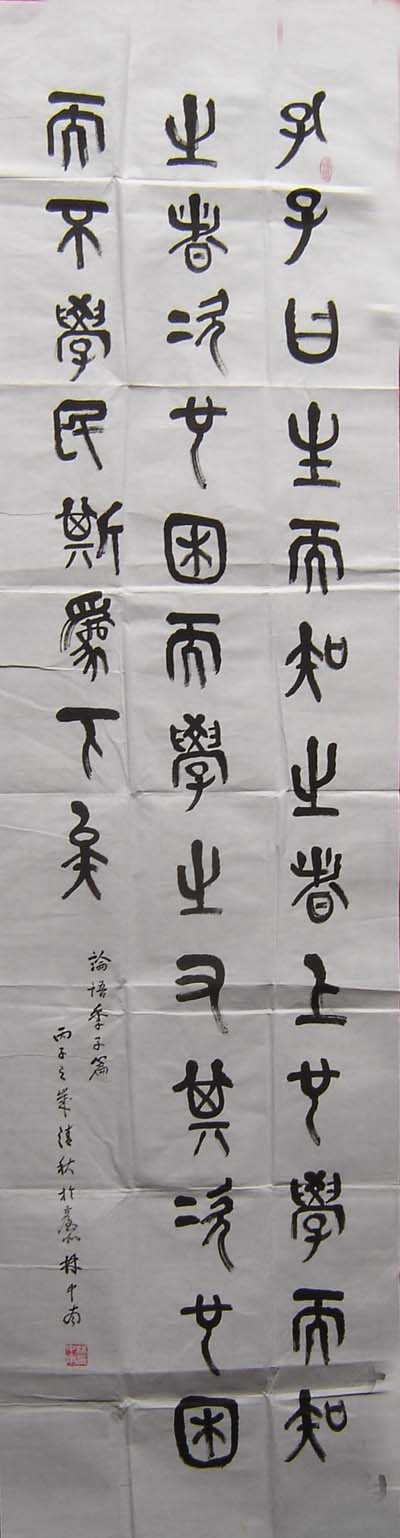 孔子曰生而知之者上也學而知
之者次也困而學之又其次也困
而不學民斯爲下矣
論語季子篇
丙子之歲清秋於 林中南